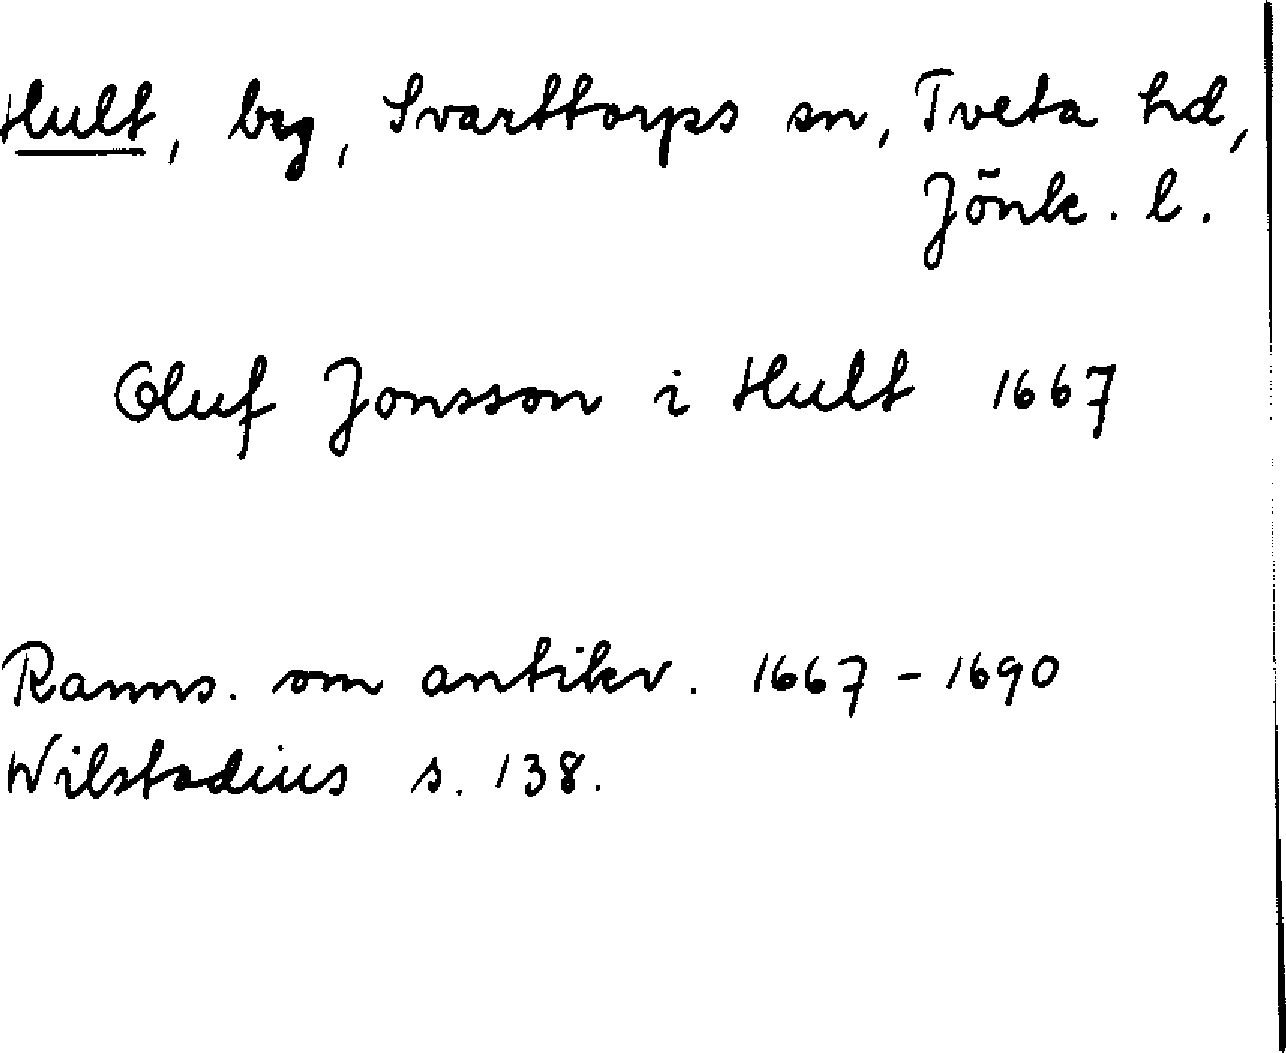 Hult, beg, Svarttorps sn, Tveta hd,
Jönk. l.
Oluf Jonsson i Hult 1667
Ranns. om antikv. 1667-1690
Wilstadius s. 138.